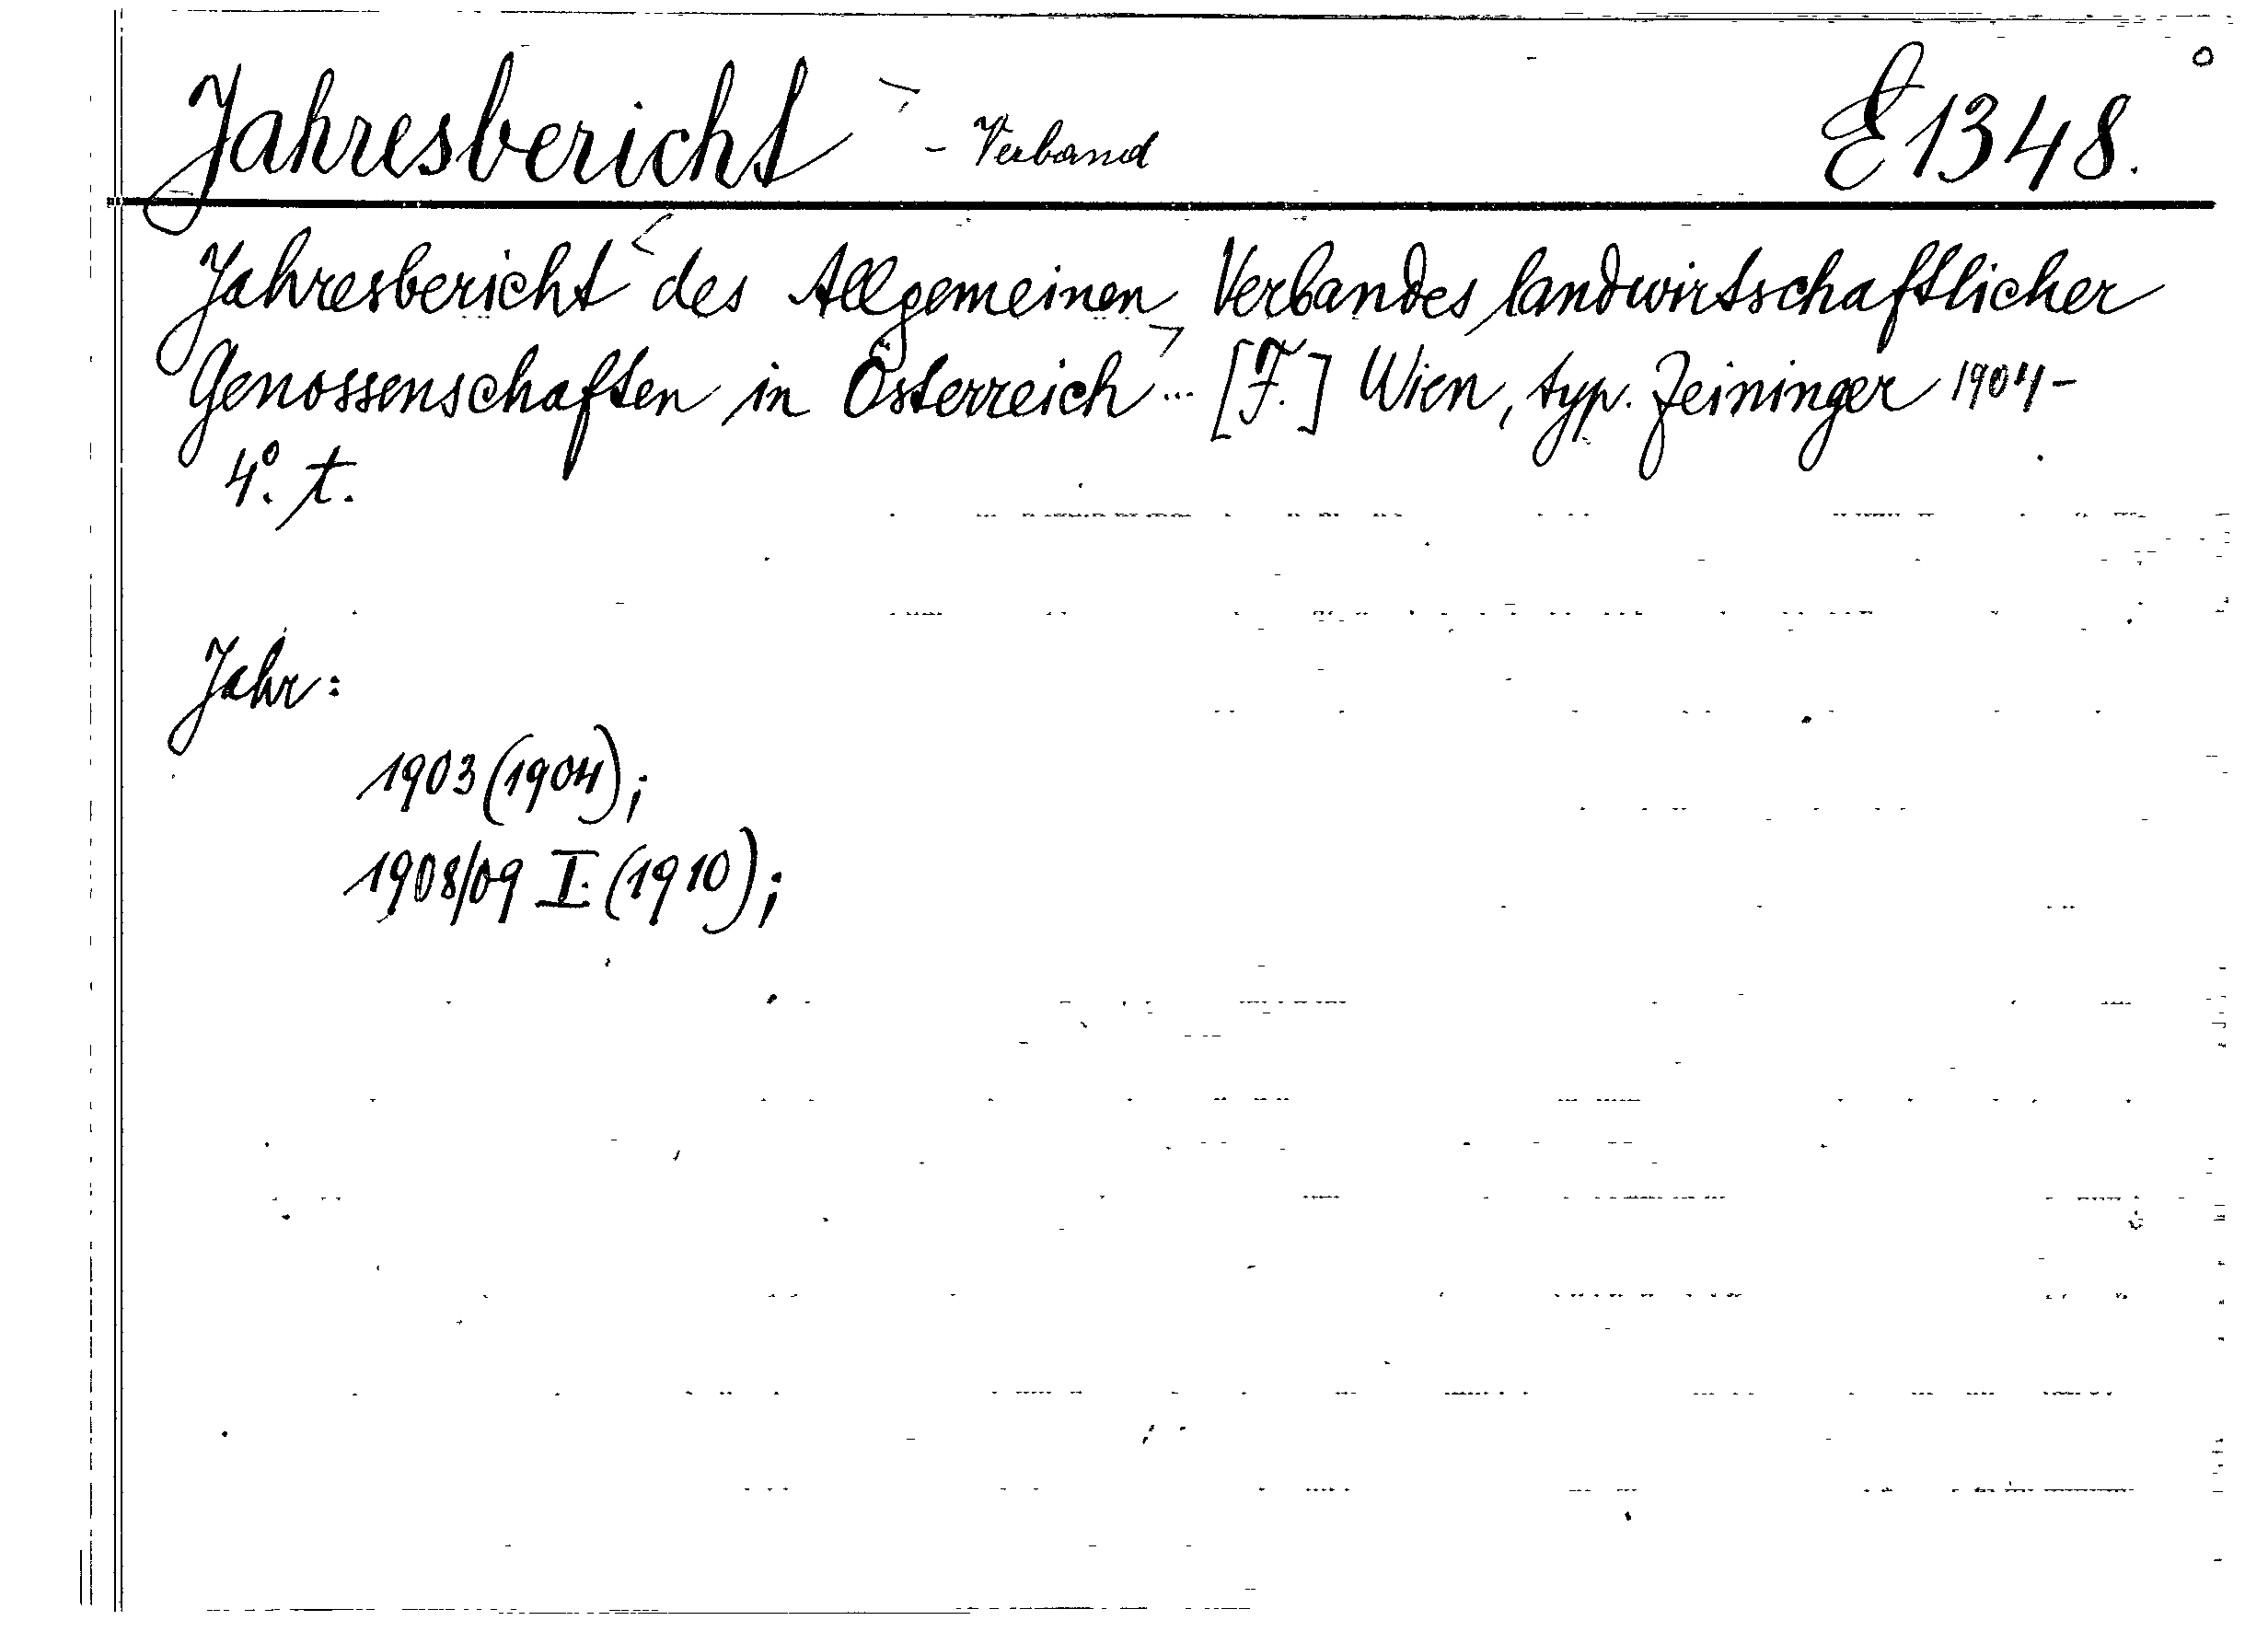 Jahresbericht - Verband E 1348.
Jahresbericht des Allgemeinen Verbandes landwirtschaftlicher
Genossenschaften in Österreich ... [F.] Wien, typ. Zeininger 1904-
4°. t.
Jahr:
1903 (1904);
1908/09 I. (1910);